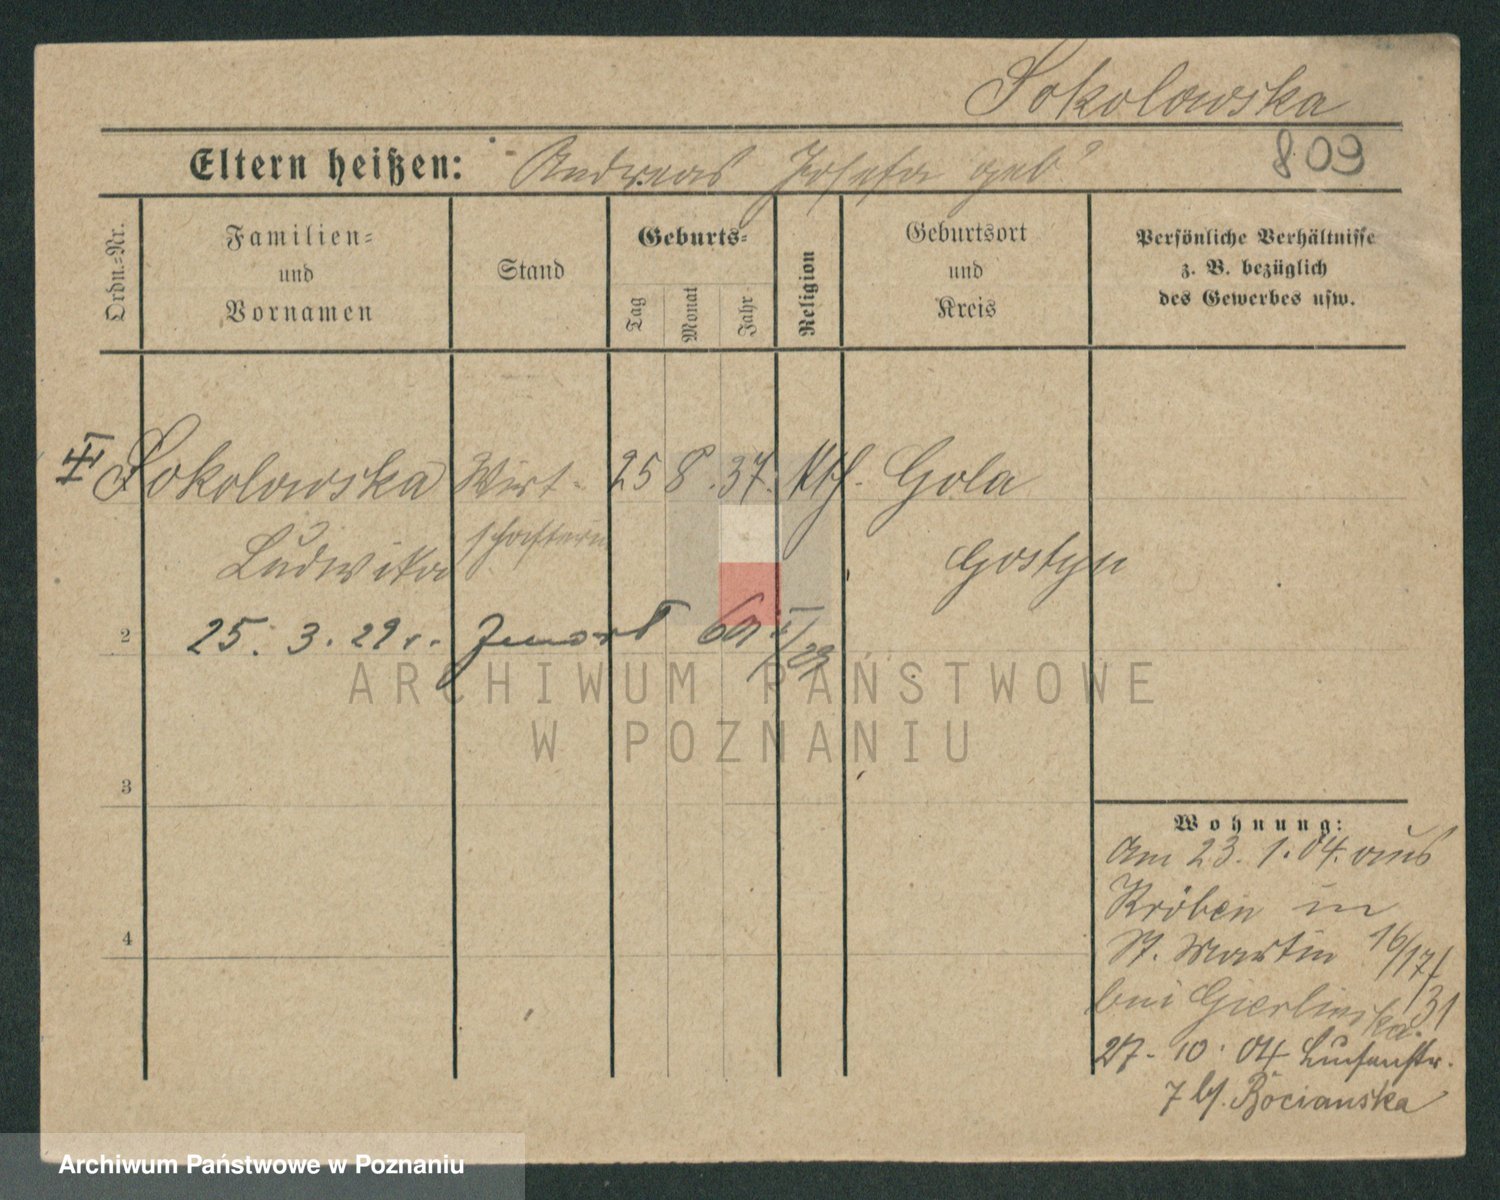 Sokolowska
Eltern heißen: Andreas Josefa geb?
809
Ordn.=Nr.
Familien=
und
Vornamen
Stand
Geburts=
Tag
Monat
Jahr
Religion
Geburtsort
und
Kreis
Persönliche Verhältnisse
z. B. bezüglich
des Gewerbes usw.
Sokolowska Wirt- 25 8. 37. kth. Gola
Ludwika schafterin Gostyn
2 25. 3. 29 r.
ARCHIWUM PAŃSTWOWE
W POZNANIU
3
Wohnung:
Am 23. 1. 04. aus
Kröben in
4 St. Martin 16/17/
bei Gierlinska. 31
27. 10. 04 Luisenstr.
7 bf. Bocianska
Archiwum Państwowe w Poznaniu